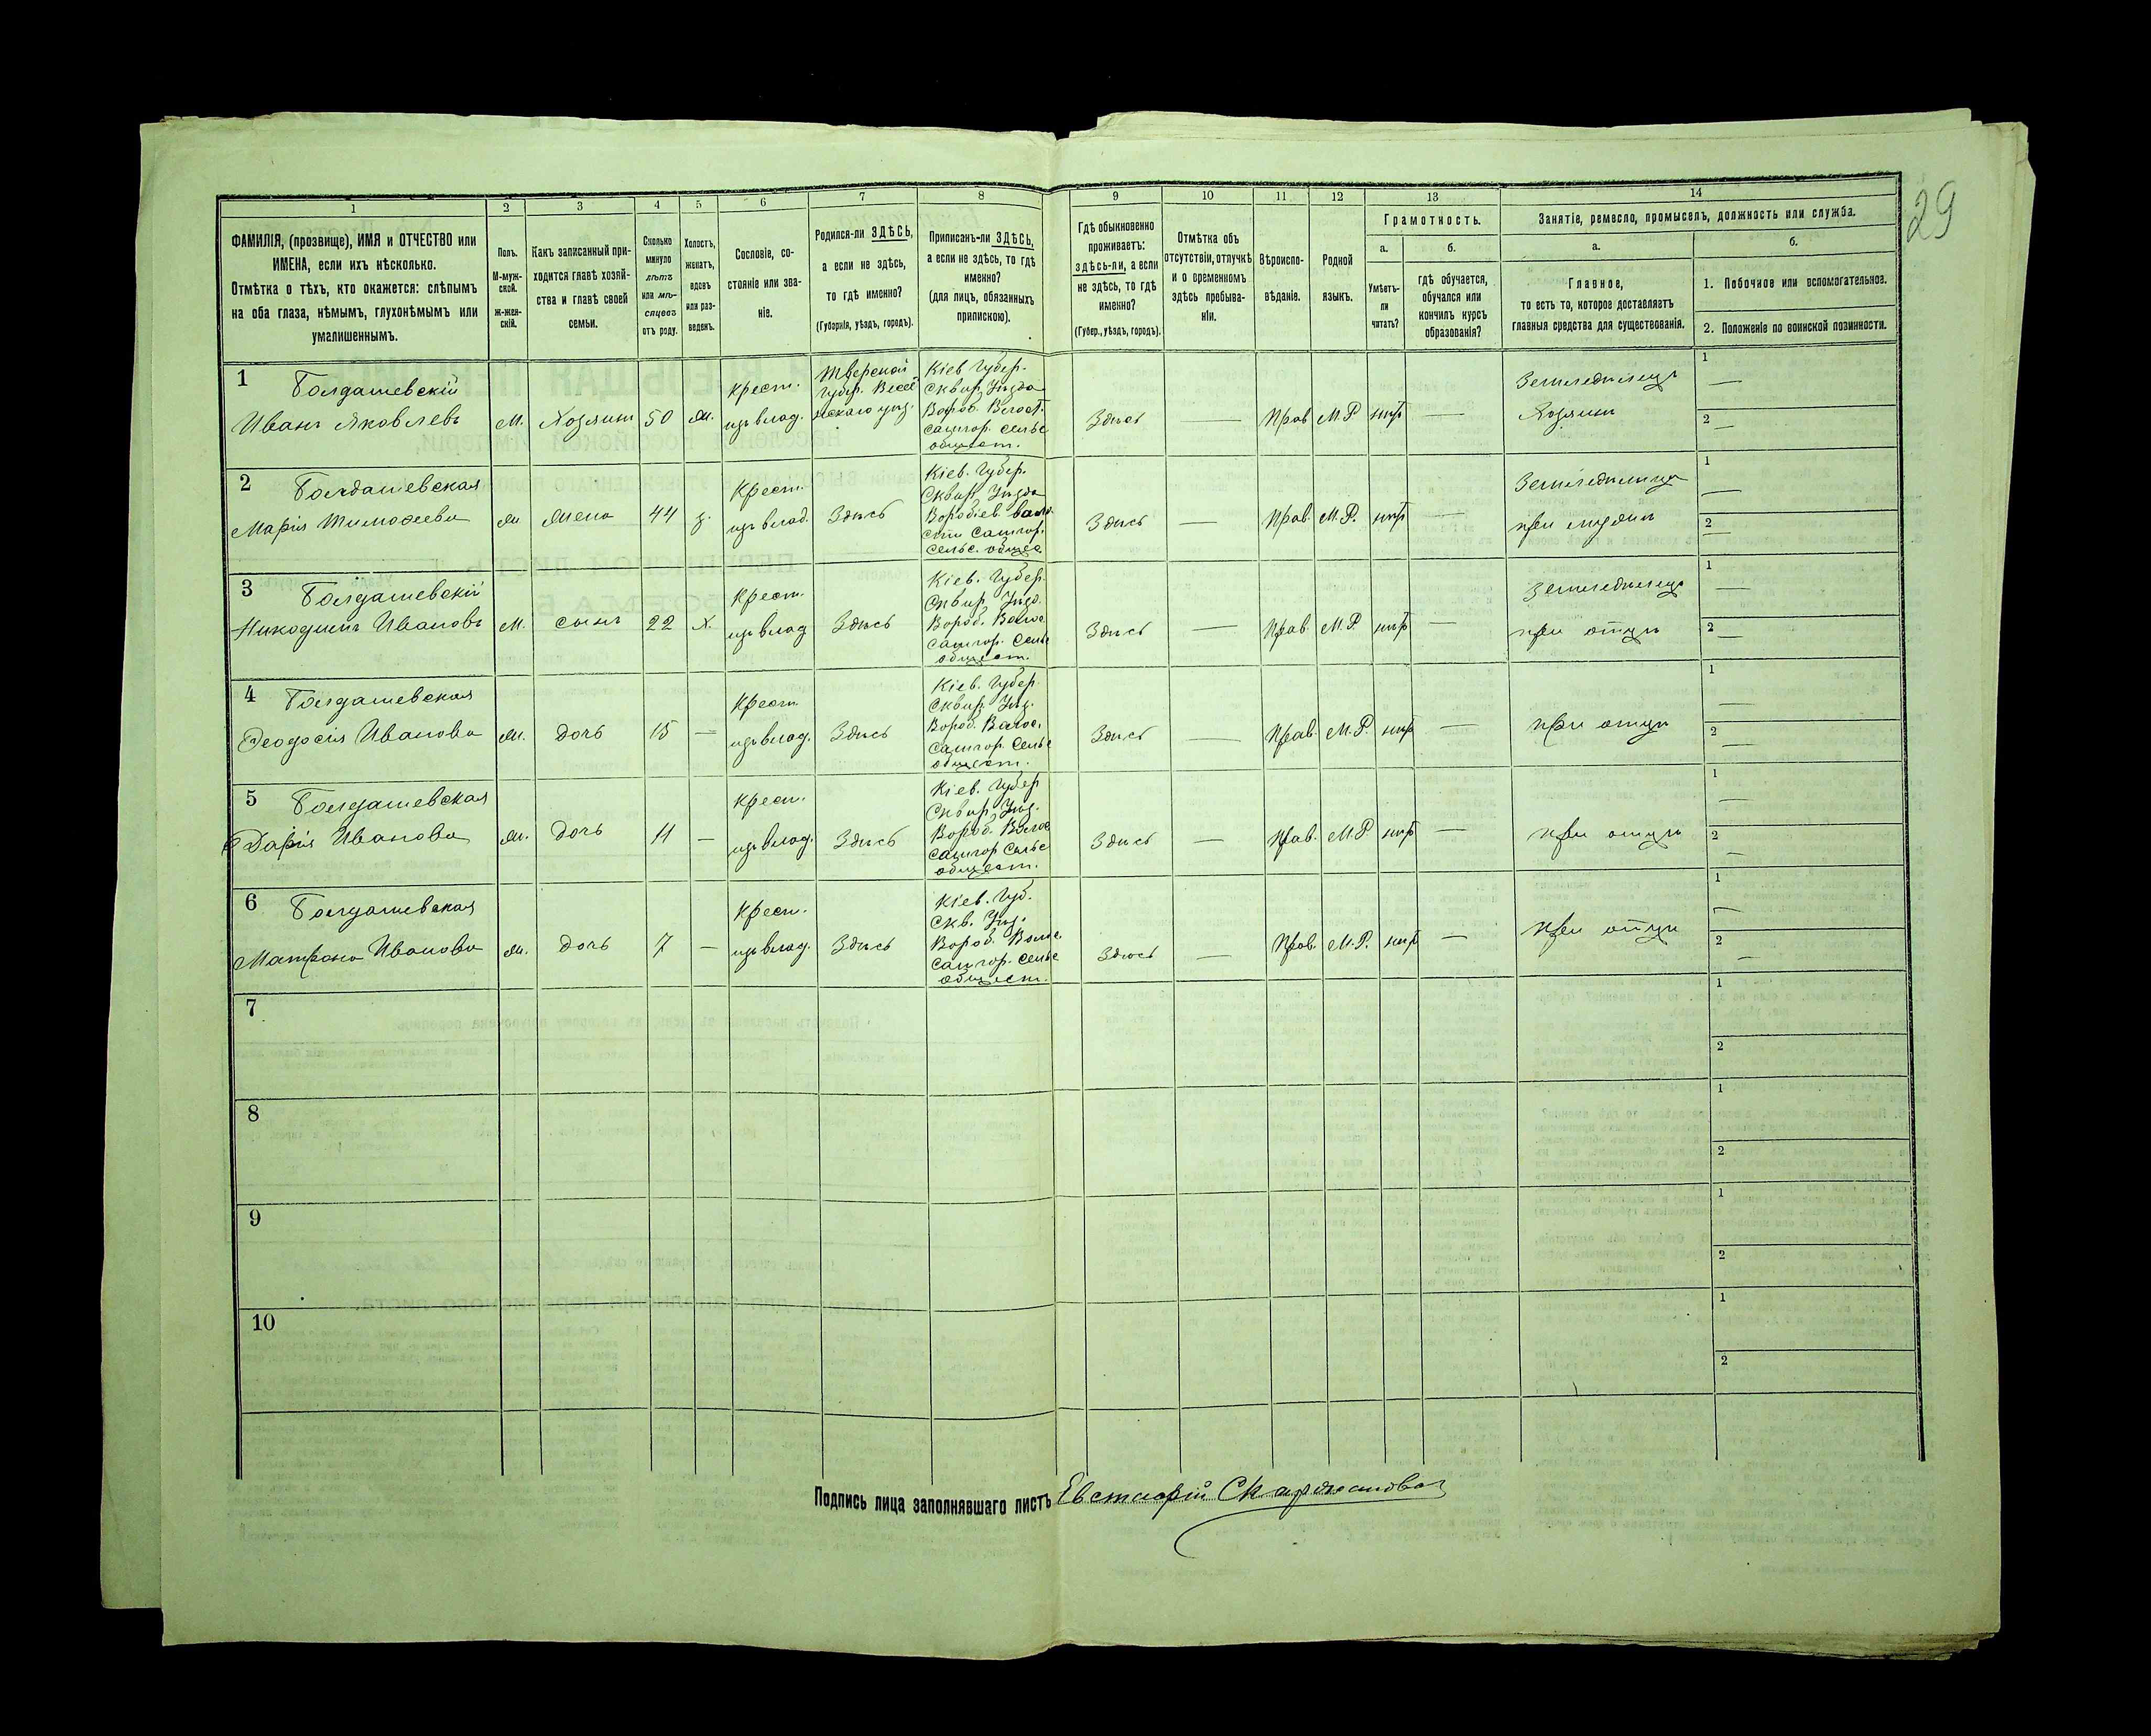 29
1 2 3 4 5 6 7 8 9 10 11 12 13 14
ФАМИЛІЯ, (прозвище), ИМЯ и ОТЧЕСТВО или
ИМЕНА, если ихъ нѣсколько.
Отмѣтка о тѣхъ, кто окажется: слѣпымъ
на оба глаза, нѣмымъ, глухонѣмымъ или
умалишеннымъ.
Полъ.
М-муж-
ской.
ж-жен-
скій.
Какъ записанный при-
ходится главѣ хозяй-
ства и главѣ своей
семьи.
Сколько
минуло
лѣтъ
или мѣ-
сяцевъ
отъ роду.
Холостъ,
женатъ,
вдовъ
или раз-
веденъ.
Сословіе, со-
стояніе или зва-
ніе.
Родился-ли ЗДѢСЬ,
а если не здѣсь,
то гдѣ именно?
(Губернія, уѣздъ, городъ).
Приписанъ-ли ЗДѢСЬ,
а если не здѣсь, то гдѣ
именно?
(для лицъ, обязанныхъ
припискою).
Гдѣ обыкновенно
проживаетъ:
здѣсь-ли, а если
не здѣсь, то гдѣ
именно?
(Губер., уѣздъ, городъ).
Отмѣтка объ
отсутствіи, отлучкѣ
и о временномъ
здѣсь пребыва-
ніи.
Вѣроиспо-
вѣданіе.
Родной
языкъ.
Грамотность.
а.
Умѣетъ-
ли
читать?
б.
гдѣ обучается,
обучался или
кончилъ курсъ
образованія?
Занятіе, ремесло, промыселъ, должность или служба.
а.
Главное,
то есть то, которое доставляетъ
главныя средства для существованія.
б.
1. Побочное или вспомогательное.
2. Положеніе по воинской повинности.
1 Болдашевскій
Иванъ Яковлевъ
М. Хозяинъ 50 ж.
крест.
изъ влад.
Тверской
Губер.
Кіев Губер.
Сквир. Уѣзда
Вороб. Волост.
Сащгор. Сельс
общест.
Здѣсь — Прав М.Р. нѣтъ —
Земледѣлецъ
Хозяинъ
1 —
2 —
2 Болдашевская
Марія Тимофеева
ж жена 44 з.
крест.
изъ влад.
Здѣсь
Кіев. Губер.
Сквир. Уѣзда
Воробіев вало
сти Сащгор.
Сельс. общес
Здѣсь — Прав. М.Р. нѣтъ —
Земледѣлица
при мужѣ
1 —
2 —
3 Болдашевскій
Никодимъ Ивановъ
М. сынъ 22 х.
крест.
изъ влад
Здѣсь
Кіев. Губер.
Сквир. Уѣзд.
Вороб. Волос
Сащгор. Сельс
общест.
Здѣсь — Прав. М.Р. нѣтъ —
Земледѣлецъ
при отцѣ
1 —
2 —
4 Болдашевская
Феодосія Иванова
ж. дочь 15 —
крест.
изъ влад.
Здѣсь
Кіев. Губер.
Сквир. Уѣз.
Вороб. Волос.
Сащгор. Сельс
общест.
Здѣсь — Прав. М.Р. нѣтъ —
при отцѣ
1 —
2 —
5 Болдашевская
Дарія Иванова
ж. дочь 11 —
крест.
изъ влад.
Здѣсь
Кіев. Губер
Сквир. Уѣз.
Вороб. Волос
Сащгор Сельс
общест.
Здѣсь — Прав. М.Р. нѣтъ —
при отцѣ
1 —
2 —
6 Болдашевская
Матрона Иванова
ж. дочь 7 —
крест.
изъ влад.
Здѣсь
Кіев. Губ.
Скв. Уѣз.
Вороб. Волос.
Сащгор. Сельс
общест.
Здѣсь — Прав. М.Р. нѣтъ —
при отцѣ
1 —
2 —
7
1
2
8
1
2
9
1
2
10
1
2
Подпись лица заполнявшаго листъ